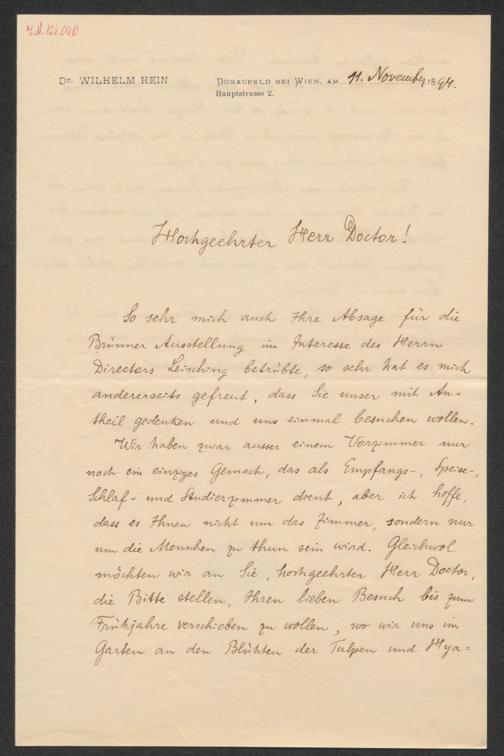 J.N. 124.040
Dr. WILHELM HEIN
DONAUFELD BEI WIEN, AM 11. November 1894.
Hauptstrasse 2.
Hochgeehrter Herr Doctor!
So sehr mich auch Ihre Absage für die
Brünner Ausstellung im Interesse des Herrn
Directors Leisching betrübte, so sehr hat es mich
andererseits gefreut, dass Sie unser mit An-
theil gedenken und uns einmal besuchen wollen.
Wir haben zwar ausser einem Vorzimmer nur
noch ein einziges Gemach, das als Empfangs-, Speise-,
Schlaf- und Studierzimmer dient, aber ich hoffe,
dass es Ihnen nicht um das Zimmer, sondern nur
um die Menschen zu thun sein wird. Gleichwol
möchten wir an Sie, hochgeehrter Herr Doctor,
die Bitte stellen, Ihren lieben Besuch bis zum
Frühjahre verschieben zu wollen, wo wir uns im
Garten an den Blühten der Tulpen und Hya=